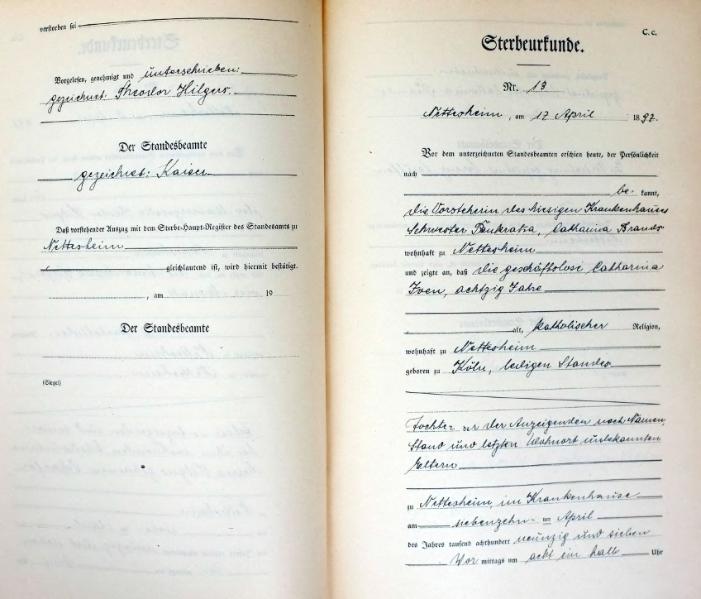 verstorben sei
Vorgelesen, genehmigt und unterschrieben:
gezeichnet: Theodor Hilgers.
Der Standesbeamte
gezeichnet: Kaiser
Daß vorstehender Auszug mit dem Sterbe-Haupt-Register des Standesamts zu
Nettesheim
gleichlautend ist, wird hiermit bestätigt.
, am 19
Der Standesbeamte
(Siegel)
C. c.
Sterbeurkunde.
Nr. 13
Nettesheim, am 17 April 1897.
Vor dem unterzeichneten Standesbeamten erschien heute, der Persönlichkeit
nach
be- kannt,
die Vorsteherin des hiesigen Krankenhauses
Schwester Pankratia, Catharina Brands
wohnhaft zu Nettesheim
und zeigte an, daß die geschäftslose Catharina
Iven, achtzig Jahre
alt, katholischer Religion,
wohnhaft zu Nettesheim
geboren zu Köln, ledigen Standes
Tochter der der Anzeigenden nach Namen,
Stand und letzten Wohnort unbekannten
Eltern
zu Nettesheim, im Krankenhause
am siebenzehn- ten April
des Jahres tausend achthundert neunzig und sieben
Vor mittags um acht ein halb Uhr